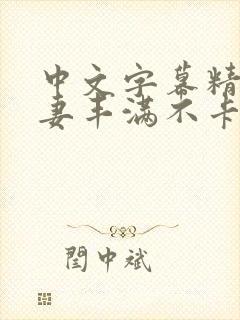 中文字幕精
妻丰满不卡
閆中斌